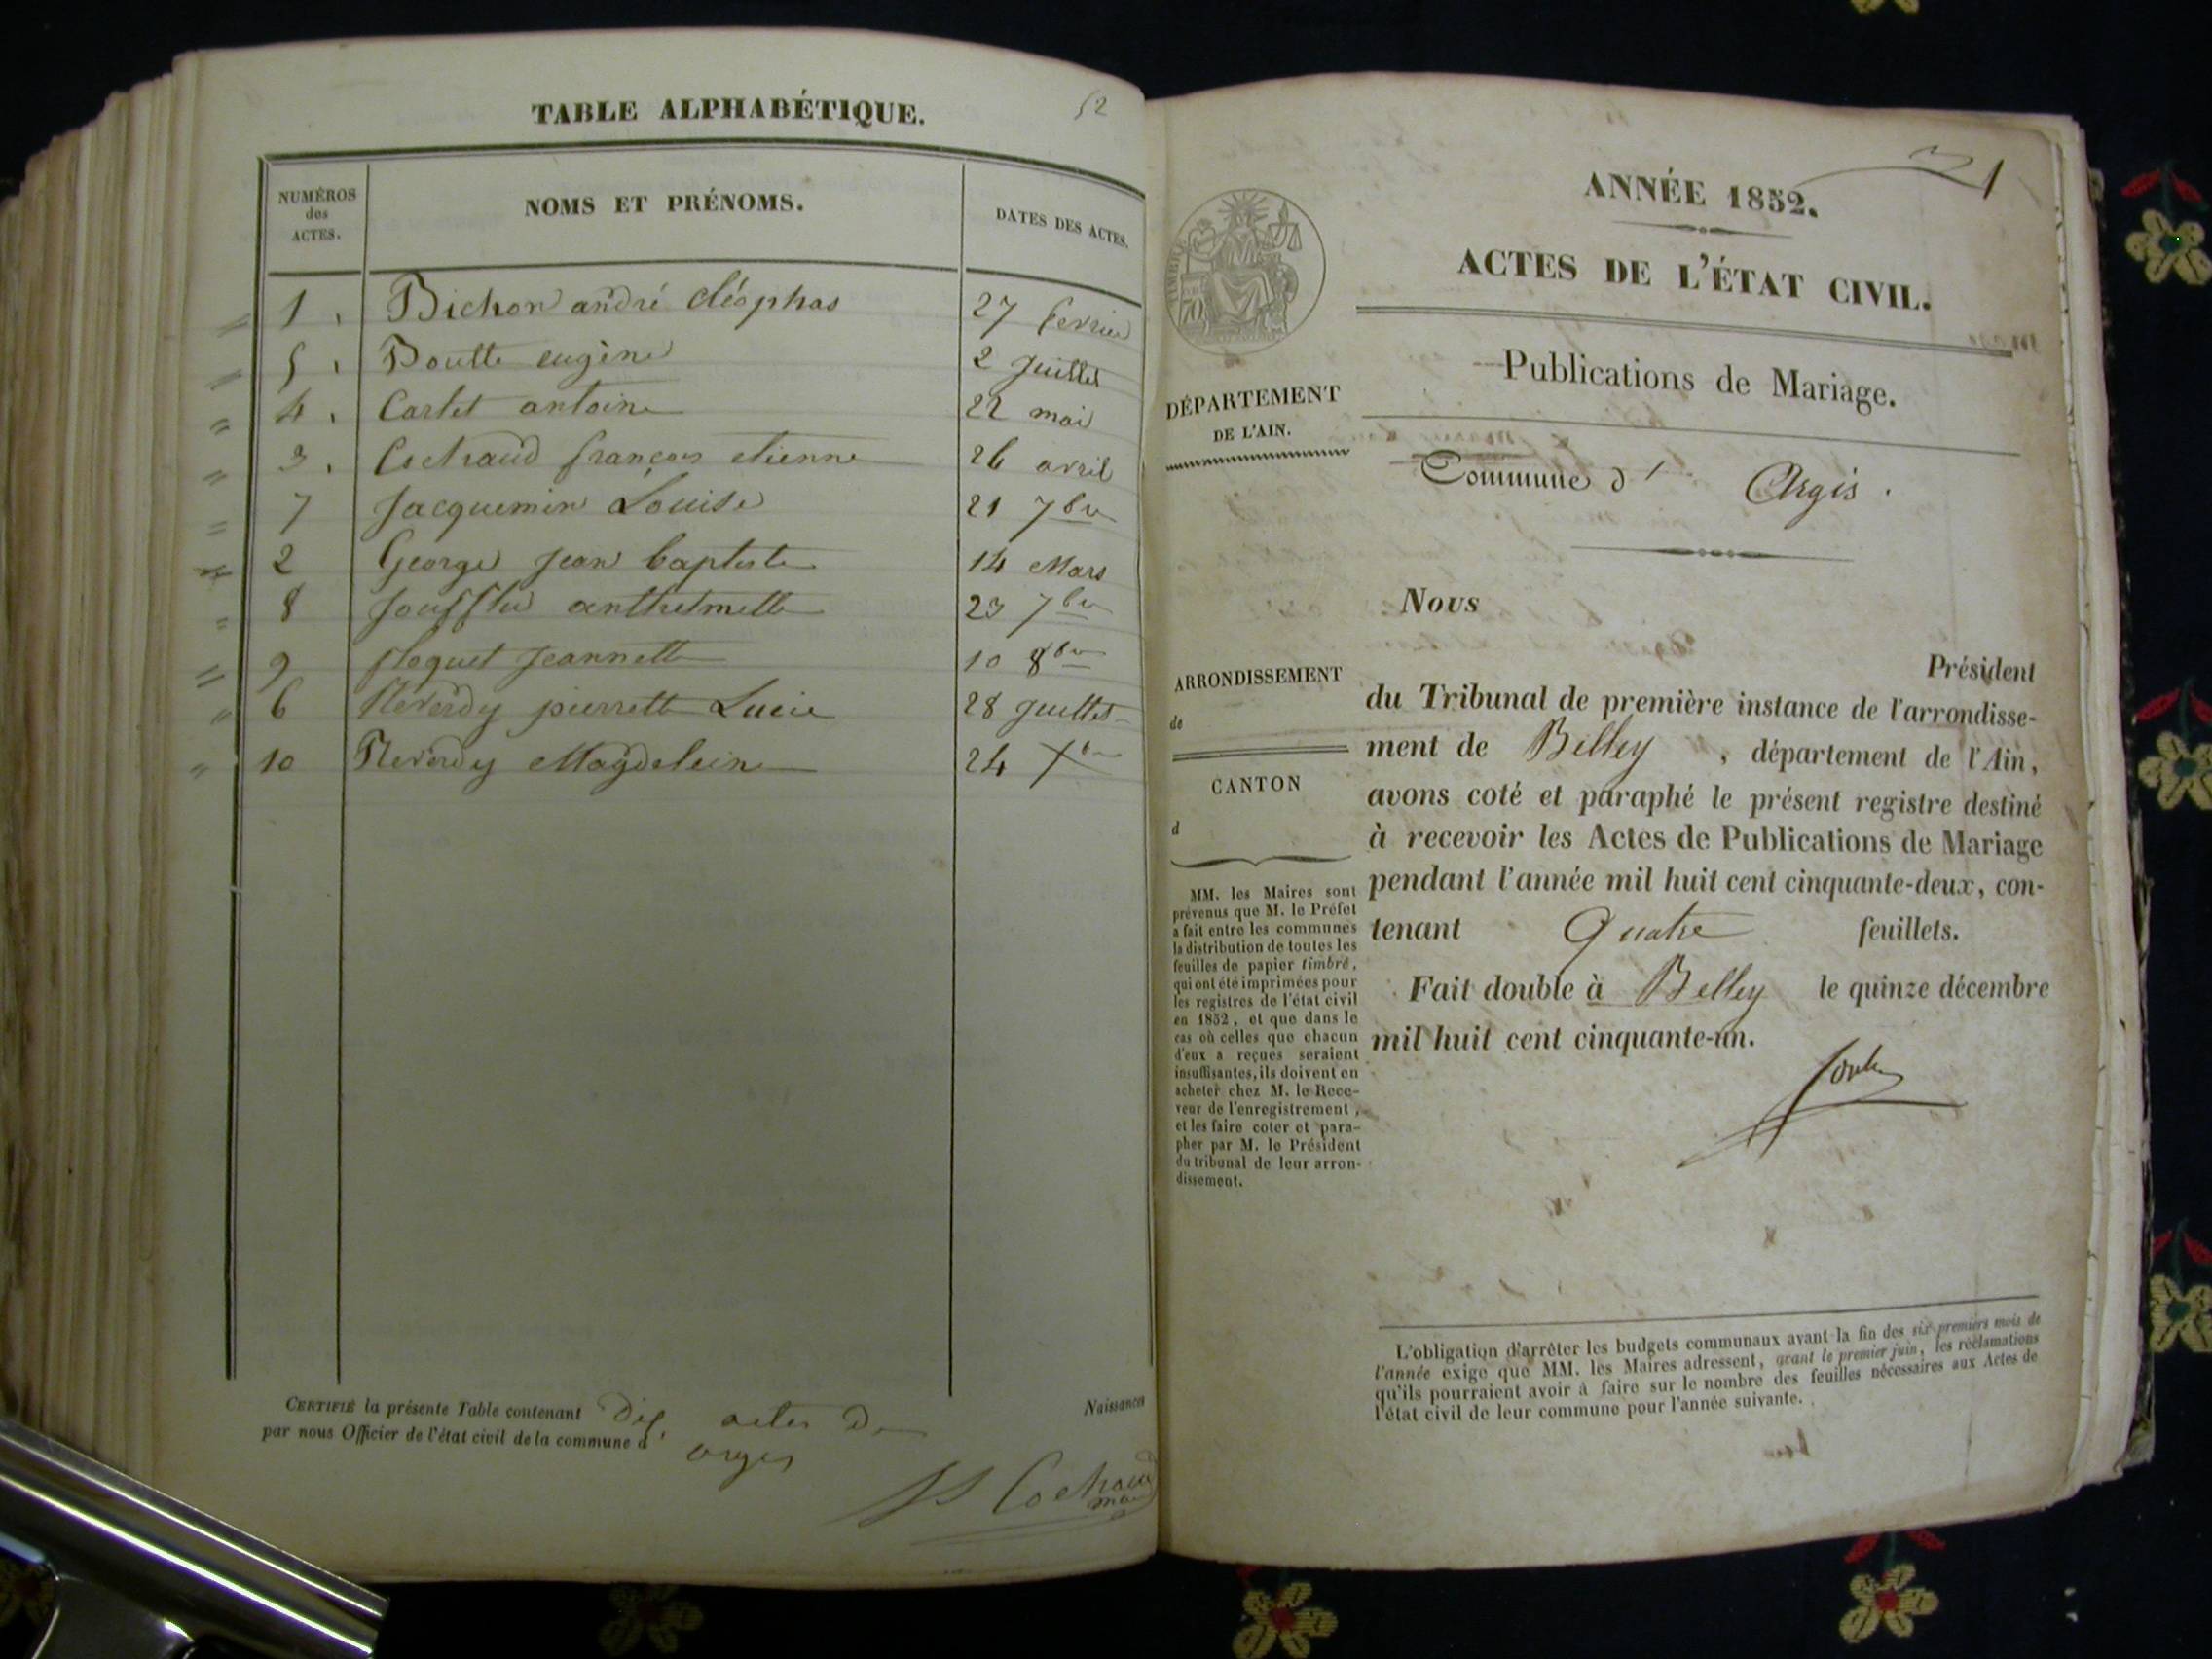 TABLE ALPHABÉTIQUE.
52
NUMÉROS
des
ACTES.
NOMS ET PRÉNOMS.
DATES DES ACTES.
1 Bichon andré cléophas 27 fevrier
5 Boutte eugène 2 juillet
4 Carlet antoine 22 mai
3 Cochaud françois etienne 26 avril
7 Jacquemin Louise 21 7bre
2 George jean baptiste 14 Mars
8 anthelmette 23 7bre
9 jeannette 10 8bre
6 Reverdy pierrette Lucie 28 juillet
10 Reverdy Magdeleine 24 Xbre
CERTIFIÉ la présente Table contenant dix actes de Naissances
par nous Officier de l'état civil de la commune d'
Cochaud
ANNÉE 1852.
ACTES DE L'ÉTAT CIVIL.
Publications de Mariage.
TIMBRE
70
DÉPARTEMENT
DE L'AIN.
Commune d' Argis.
Nous
Président
ARRONDISSEMENT
de
CANTON
d
du Tribunal de première instance de l'arrondisse-
ment de Belley, département de l'Ain,
avons coté et paraphé le présent registre destiné
à recevoir les Actes de Publications de Mariage
pendant l'année mil huit cent cinquante-deux, con-
tenant Quatre feuillets.
Fait double à Belley le quinze décembre
mil huit cent cinquante-un.
MM. les Maires sont
prévenus que M. le Préfet
a fait entre les communes
la distribution de toutes les
feuilles de papier timbré,
qui ont été imprimées pour
les registres de l'état civil
en 1852, et que dans le
cas où celles que chacun
d'eux a reçues seraient
insuffisantes, ils doivent en
acheter chez M. le Rece-
veur de l'enregistrement,
et les faire coter et para-
pher par M. le Président
du tribunal de leur arron-
dissement.
L'obligation d'arrêter les budgets communaux avant la fin des six premiers mois de
l'année exige que MM. les Maires adressent, avant le premier juin, les réclamations
qu'ils pourraient avoir à faire sur le nombre des feuilles nécessaires aux Actes de
l'état civil de leur commune pour l'année suivante.